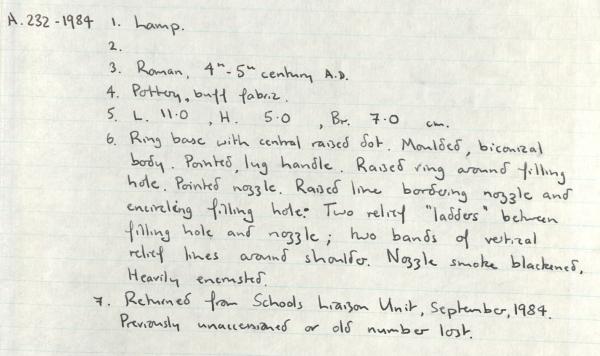 A.232-1984 1. Lamp.
2.
3. Roman, 4th-5th century A.D.
4. Pottery, buff fabric.
5. L. 11.0 , H. 5.0 , Br. 7.0 cm.
6. Ring base with central raised dot. Moulded, biconical
body. Pointed, lug handle. Raised ring around filling
hole. Pointed nozzle. Raised line bordering nozzle and
encircling filling hole: Two relief "ladders" between
filling hole and nozzle; two bands of vertical
relief lines around shoulder. Nozzle smoke blackened.
Heavily encrusted.
7. Returned from Schools Liaison Unit, September, 1984.
Previously unaccessioned or old number lost.